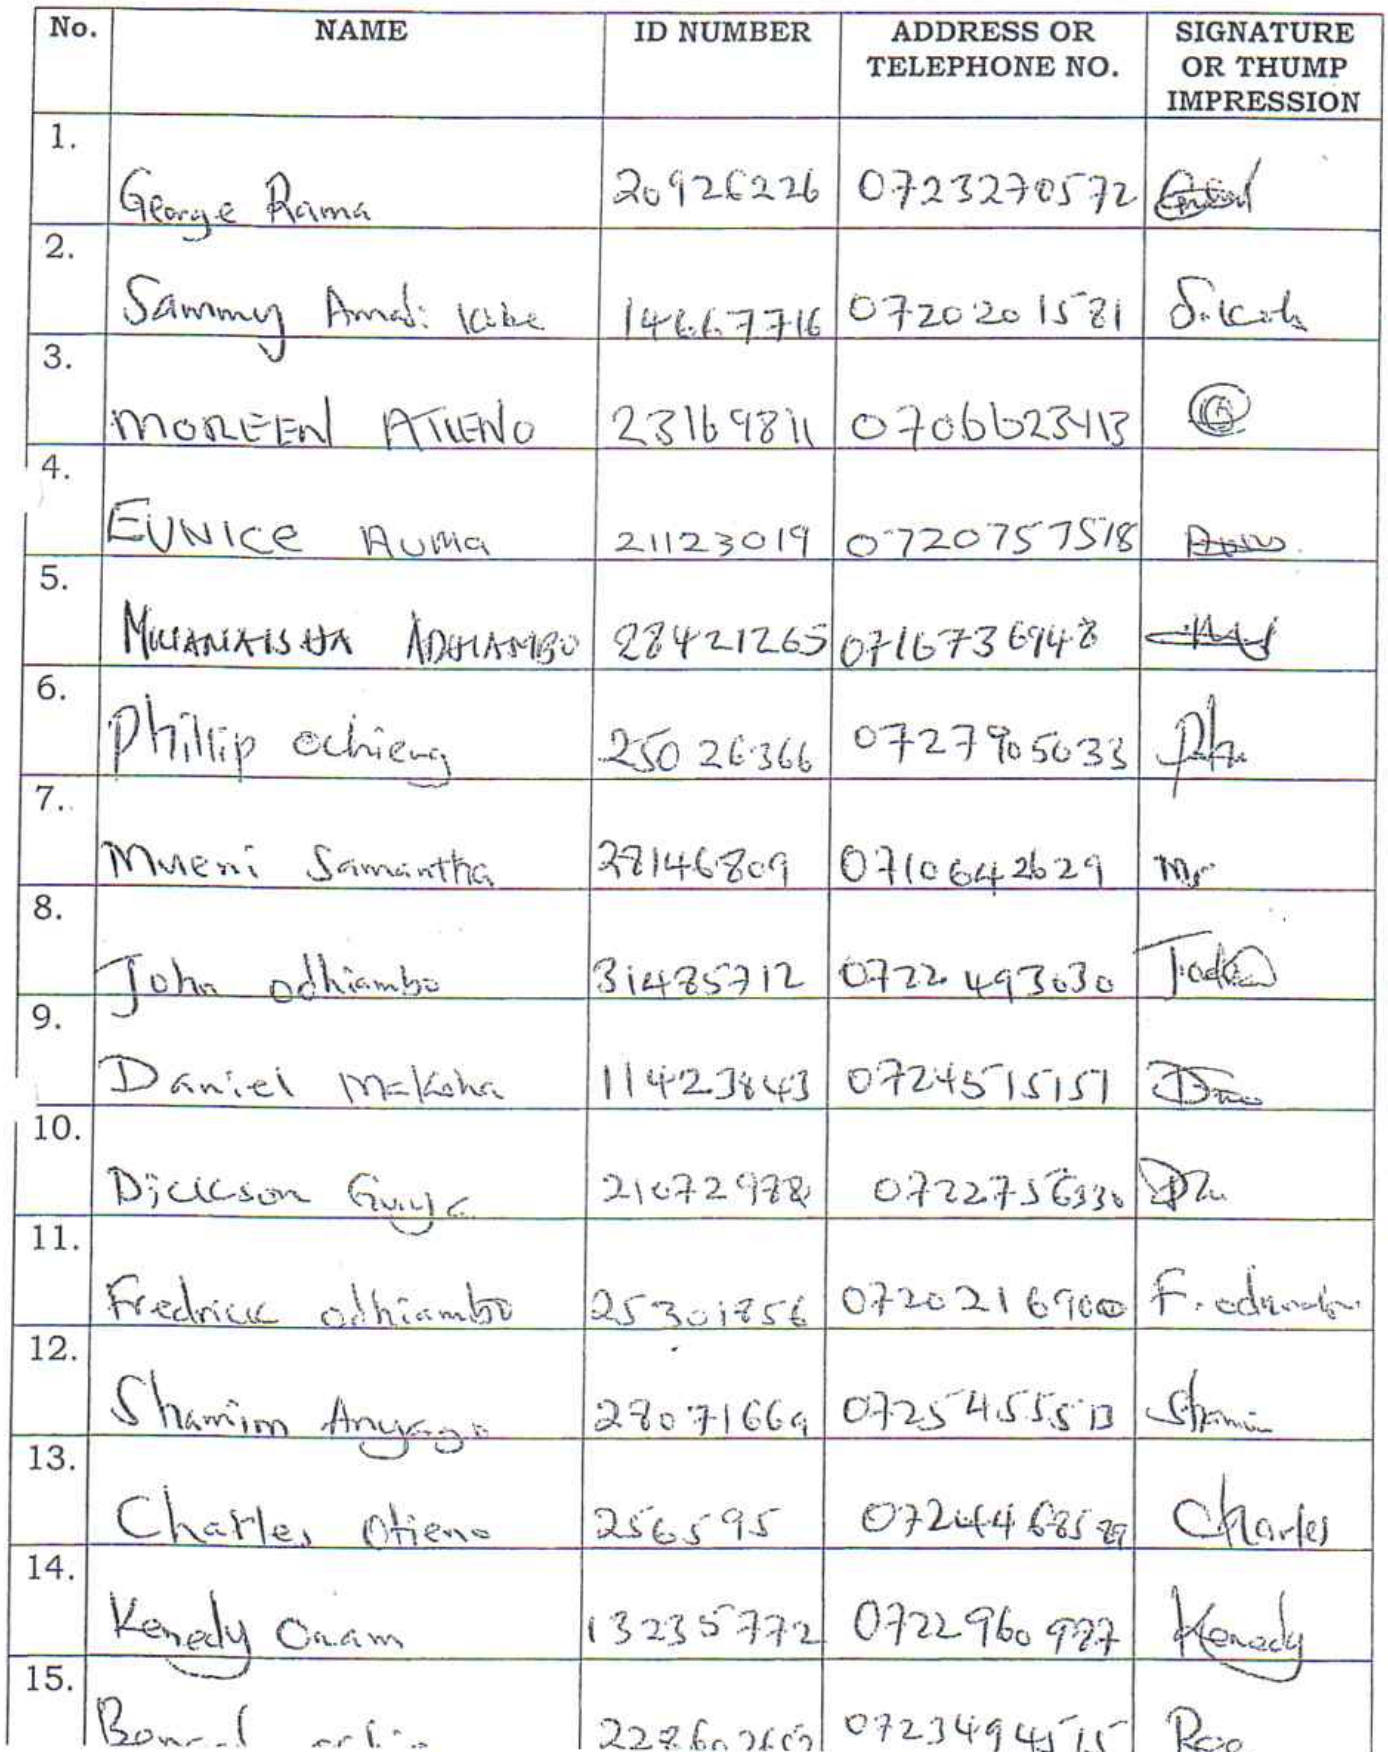 No. NAME ID NUMBER ADDRESS OR TELEPHONE NO. SIGNATURE OR THUMP IMPRESSION
1. George Rama 20926226 0723270572
2. Sammy Amadi 14667716 0720201581
3. MOREEN ATIENO 23169811 0706623413
4. EUNICE AUMA 21123019 0720757518
5. MWANAISHA ADHIAMBO 28421265 0716736948
6. Phillip ochieng 25026366 0727905033
7. Mueni Samantha 28146809 0710642629
8. John odhiambo 31485712 0722493030
9. Daniel 11423843 0724515151
10. Dickson 0722756330
11. Fredrick odhiambo 25301856 F.
12. Shamim Anyango 28071669 Shamim
13. Charles Otieno 256595 Charles
14. Kenedy 13235772 0722960987 Kenedy
15. 0723494515